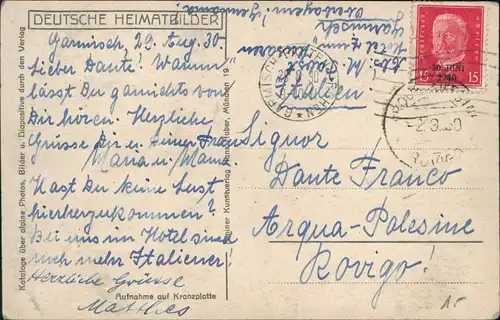 DEUTSCHE HEIMATBILDER
Garmisch, 29. Aug. 30.
Lieber Dante! Warum
lässt Du garnichts von
Dir hören. Herzliche
Grüsse Dir u. Deiner Frau
Maria u. Mama
Hast Du keine Lust
hierherzukommen?
Bei uns im Hotel sind
noch mehr Italiener!
Herzliche Grüsse
Matthes
Aufnahme auf Kranzplatte
Kataloge über alpine Photos, Bilder u. Diapositive durch den Verlag
Kunstverlag Huber, München 19
Garmisch
Italien
15 15
30. JUNI
1930
GARMISCH
2.9.30
Signor
Dante Franco
Arqua-Polesine
Rovigo!